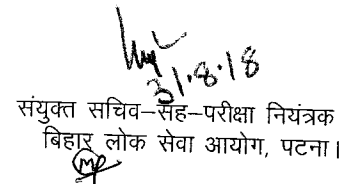 31.8.18
संयुक्त सचिव–सह–परीक्षा नियंत्रक
बिहार लोक सेवा आयोग, पटना।